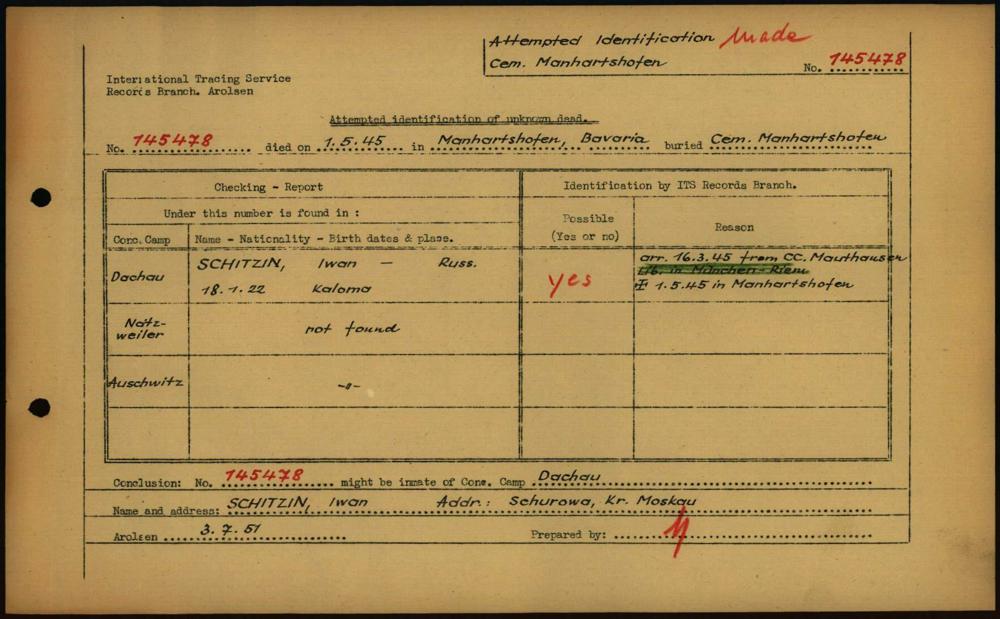 Attempted Identification Made
Cem. Manhartshofen
No. 145478
International Tracing Service
Records Branch. Arolsen
Attempted identification of unknown dead.
No. 145478 died on 1.5.45 in Manhartshofen, Bavaria buried Cem. Manhartshofen
Checking - Report
Identification by ITS Records Branch.
Under this number is found in :
Possible
(Yes or no)
Reason
Conc. Camp
Name - Nationality - Birth dates & place.
Dachau
SCHITZIN, Iwan — Russ.
18.1.22 Kaloma
yes
arr. 16.3.45 from CC. Mauthausen
Lib. in München-Riem
1.5.45 in Manhartshofen
Natz-
weiler
not found
Auschwitz
-"-
Conclusion: No. 145478 might be inmate of Conc. Camp Dachau
Name and address: SCHITZIN, Iwan Addr.: Schurowa, Kr. Moskau
Arolsen 3.7.51
Prepared by: